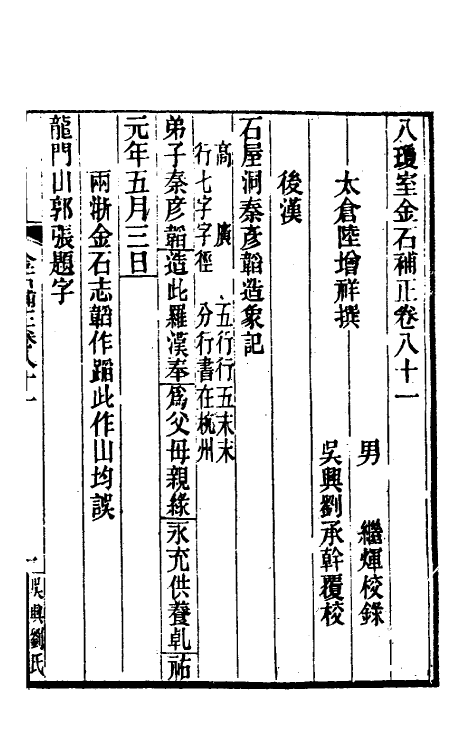 八瓊室金石補正卷八十一
太倉陸增祥撰
男　　繼煇校錄
吳興劉承幹覆校
後漢
石屋洞秦彥韜造象記
高　廣　五行行五末末
行七字字徑　分行書在杭州
弟子秦彥韜造此羅漢奉爲父母親緣永充供養乹祐
元年五月三日
兩浙金石志韜作蹈此作山均誤
龍門山郭張題字
金石補正卷八十一
一
吳興劉氏